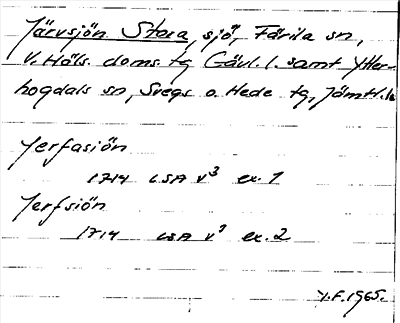 Järvsjön Stora, sjö, Färila sn,
V. Häls. doms. tg Gävl. l. samt Ytter-
hogdals sn, Svegs o. Hede tg, Jämtl. l.
Jerfasiön
1714 LSA V³ ex. 1
Jerfsiön
1714 LSA V³ ex. 2
Y.F. 1965.